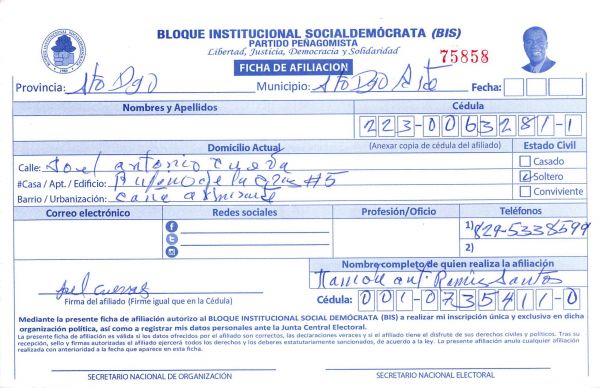 BLOQUE INSTITUCIONAL SOCIALDEMÓCRATA (BIS)
PARTIDO PEÑAGOMISTA
Libertad, Justicia, Democracia y Solidaridad
75858
FICHA DE AFILIACION
Provincia: Sto Dgo Municipio: Sto Dgo Este Fecha:
Nombres y Apellidos Cédula
223-0063281-1
Domicilio Actual (Anexar copia de cédula del afiliado) Estado Civil
Calle: Joel antonio Cueva Casado
#Casa / Apt. / Edificio: Rufino de la Cruz #5 Soltero
Barrio / Urbanización: Cana Conviviente
Correo electrónico Redes sociales Profesión/Oficio Teléfonos
1) 829-5338599
2)
Nombre completo de quien realiza la afiliación
Joel Cuevas Ramón ant. Ramirez Santos
Firma del afiliado (Firme igual que en la Cédula) Cédula: 001-0735411-0
Mediante la presente ficha de afiliación autorizo al BLOQUE INSTITUCIONAL SOCIAL DEMÓCRATA (BIS) a realizar mi inscripción única y exclusiva en dicha
organización política, así como a registrar mis datos personales ante la Junta Central Electoral.
La presente ficha de afiliación es válida si los datos ofrecidos por el afiliado son correctos, las declaraciones veraces y si el afiliado tiene el disfrute de sus derechos civiles y políticos. Tras su
recepción, sello y firmas autorizadas el afiliado ejercerá todos los derechos y los deberes estatutariamente sancionados, de acuerdo a la ley. La presente afiliación anula cualquier afiliación
realizada con anterioridad a la fecha que aparece en esta ficha.
SECRETARIO NACIONAL DE ORGANIZACIÓN SECRETARIO NACIONAL ELECTORAL